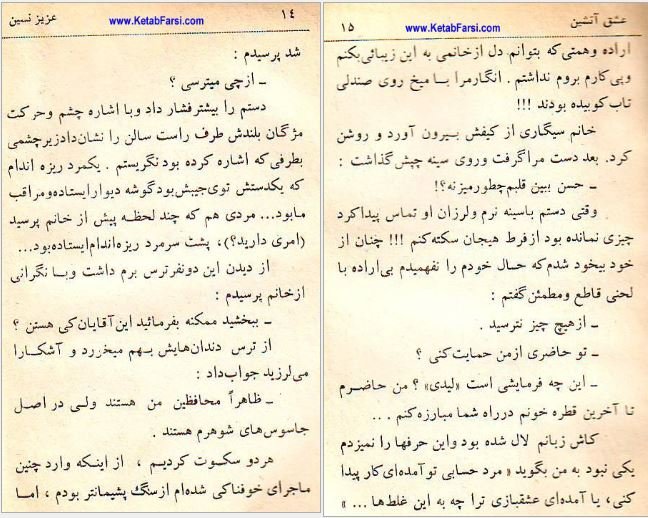 ۱٤ www.KetabFarsi.com عزیز نسین
شد پرسیدم :
ـ ازچی میترسی ؟
دستم را بیشترفشار داد وبا اشاره چشم وحرکت
مژگان بلندش طرف راست سالن را نشان‌دادزیرچشمی
بطرفی‌که اشاره کرده بودنگریستم . یکمرد ریزه اندام
که یکدستش توی‌جیبش‌بودگوشه دیوارایستاده‌ومراقب
مابود... مردی هم که چند لحظه پیش از خانم پرسید
(امری دارید؟)، پشت سرمرد ریزه‌اندام‌ایستاده‌بود...
از دیدن این دونفرترس برم داشت وبا نگرانی
ازخانم پرسیدم :
ـ ببخشید ممکنه بفرمائید این‌آقایان‌کی هستن ؟
از ترس دندان‌هایش بهم میخررد و آشکارا
می‌لرزید جواب‌داد :
ـ ظاهراً محافظین من هستند ولی در اصل
جاسوس‌های شوهرم هستند .
هردو سکوت کردیم ، از اینکه وارد چنین
ماجرای خوفناکی شده‌ام ازسگ پشیمانتر بودم ، اما
۱۵ www.KetabFarsi.com عشق آتشین
اراده وهمتی‌که بتوانم دل ازخانمی به این زیبائی‌بکنم
وپی‌کارم بروم نداشتم . انگارمرا با میخ روی صندلی
تاب‌کوبیده بودند !!!
خانم سیگاری از کیفش بیرون آورد و روشن
کرد. بعد دست مراگرفت وروی سینه چپش‌گذاشت :
ـ حسن ببین قلبم‌چطورمیزنه؟!
وقتی دستم باسینه نرم ولرزان او تماس پیداکرد
چیزی نمانده بود ازفرط هیجان سکته‌کنم !!! چنان از
خود بیخود شدم‌که حال خودم را نفهمیدم بی‌اراده با
لحنی قاطع ومطمئن‌گفتم :
ـ ازهیچ چیز نترسید .
ـ تو حاضری ازمن حمایت‌کنی ؟
ـ این چه فرمایشی است «لیدی» ؟ من حاضرم
تا آخرین قطره خونم درراه شما مبارزه‌کنم ...
کاش زبانم لال شده بود واین حرفها را نمیزدم
یکی نبود به من بگوید « مرد حسابی تو آمده‌ای‌کار پیدا
کنی، یا آمده‌ای عشقبازی ترا چه به این غلط‌ها ... »